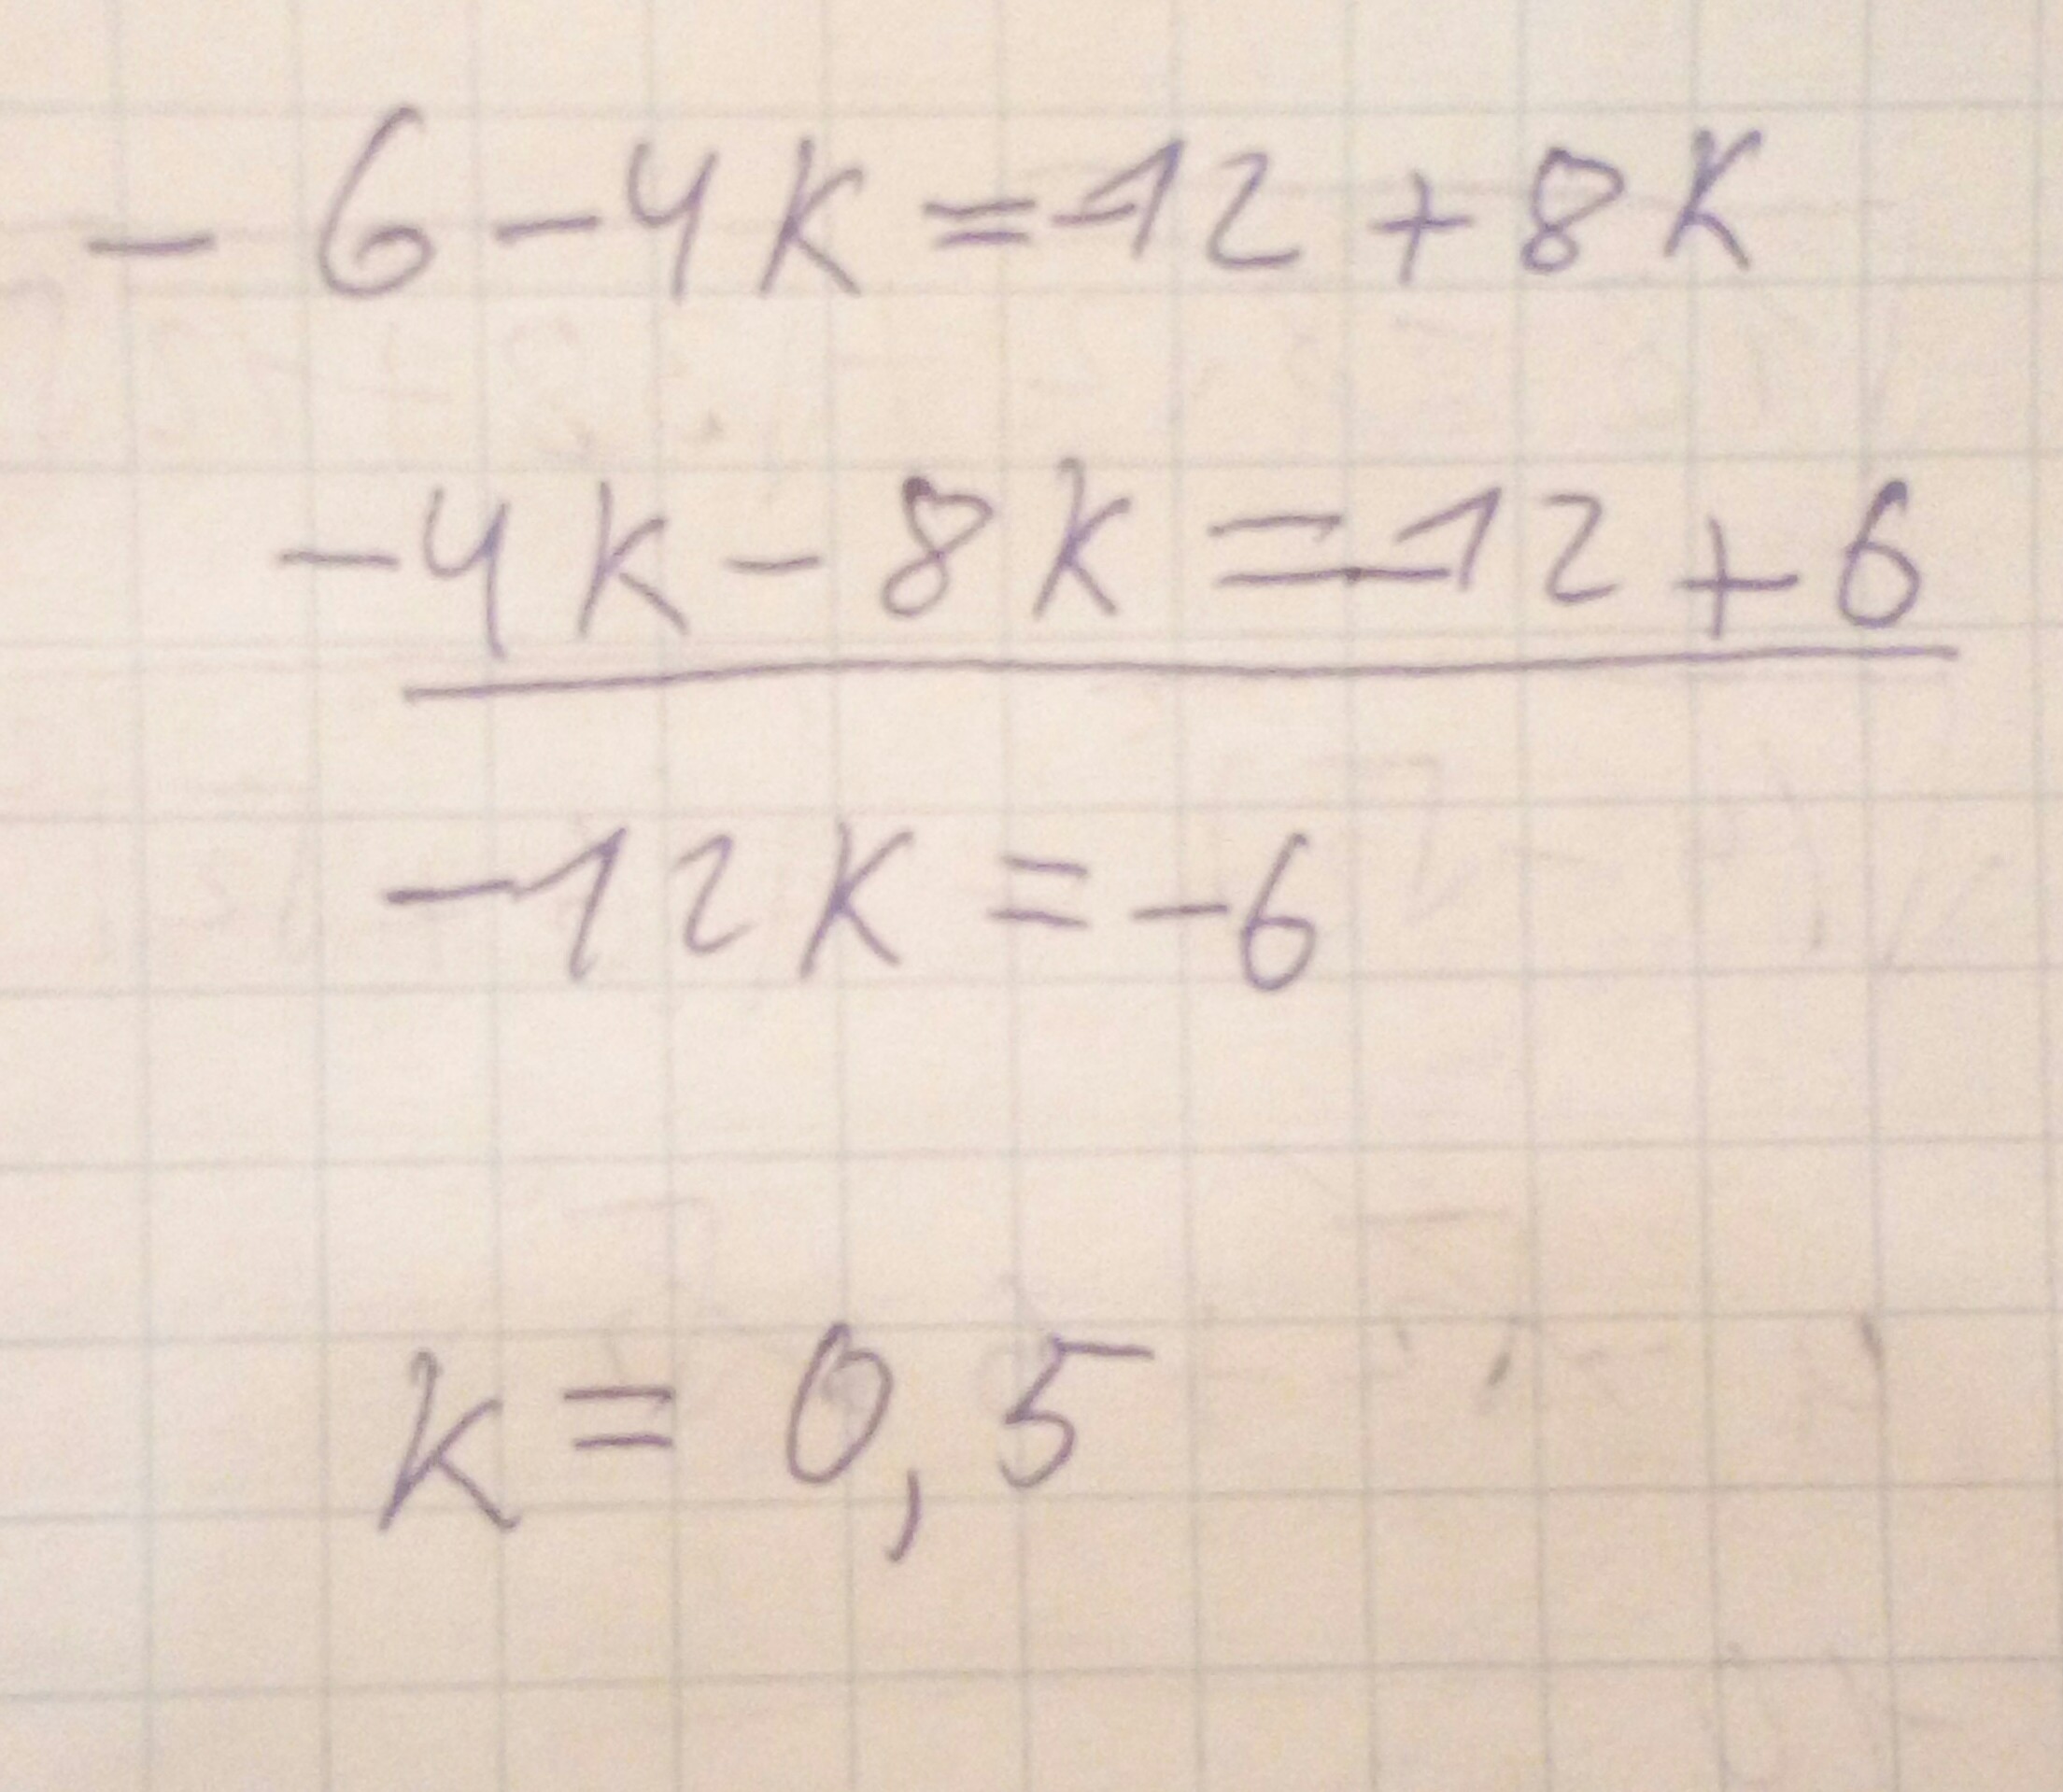 - 6 - 4K = -12 + 8K
-4K - 8K = -12 + 6
-12K = -6
K = 0,5